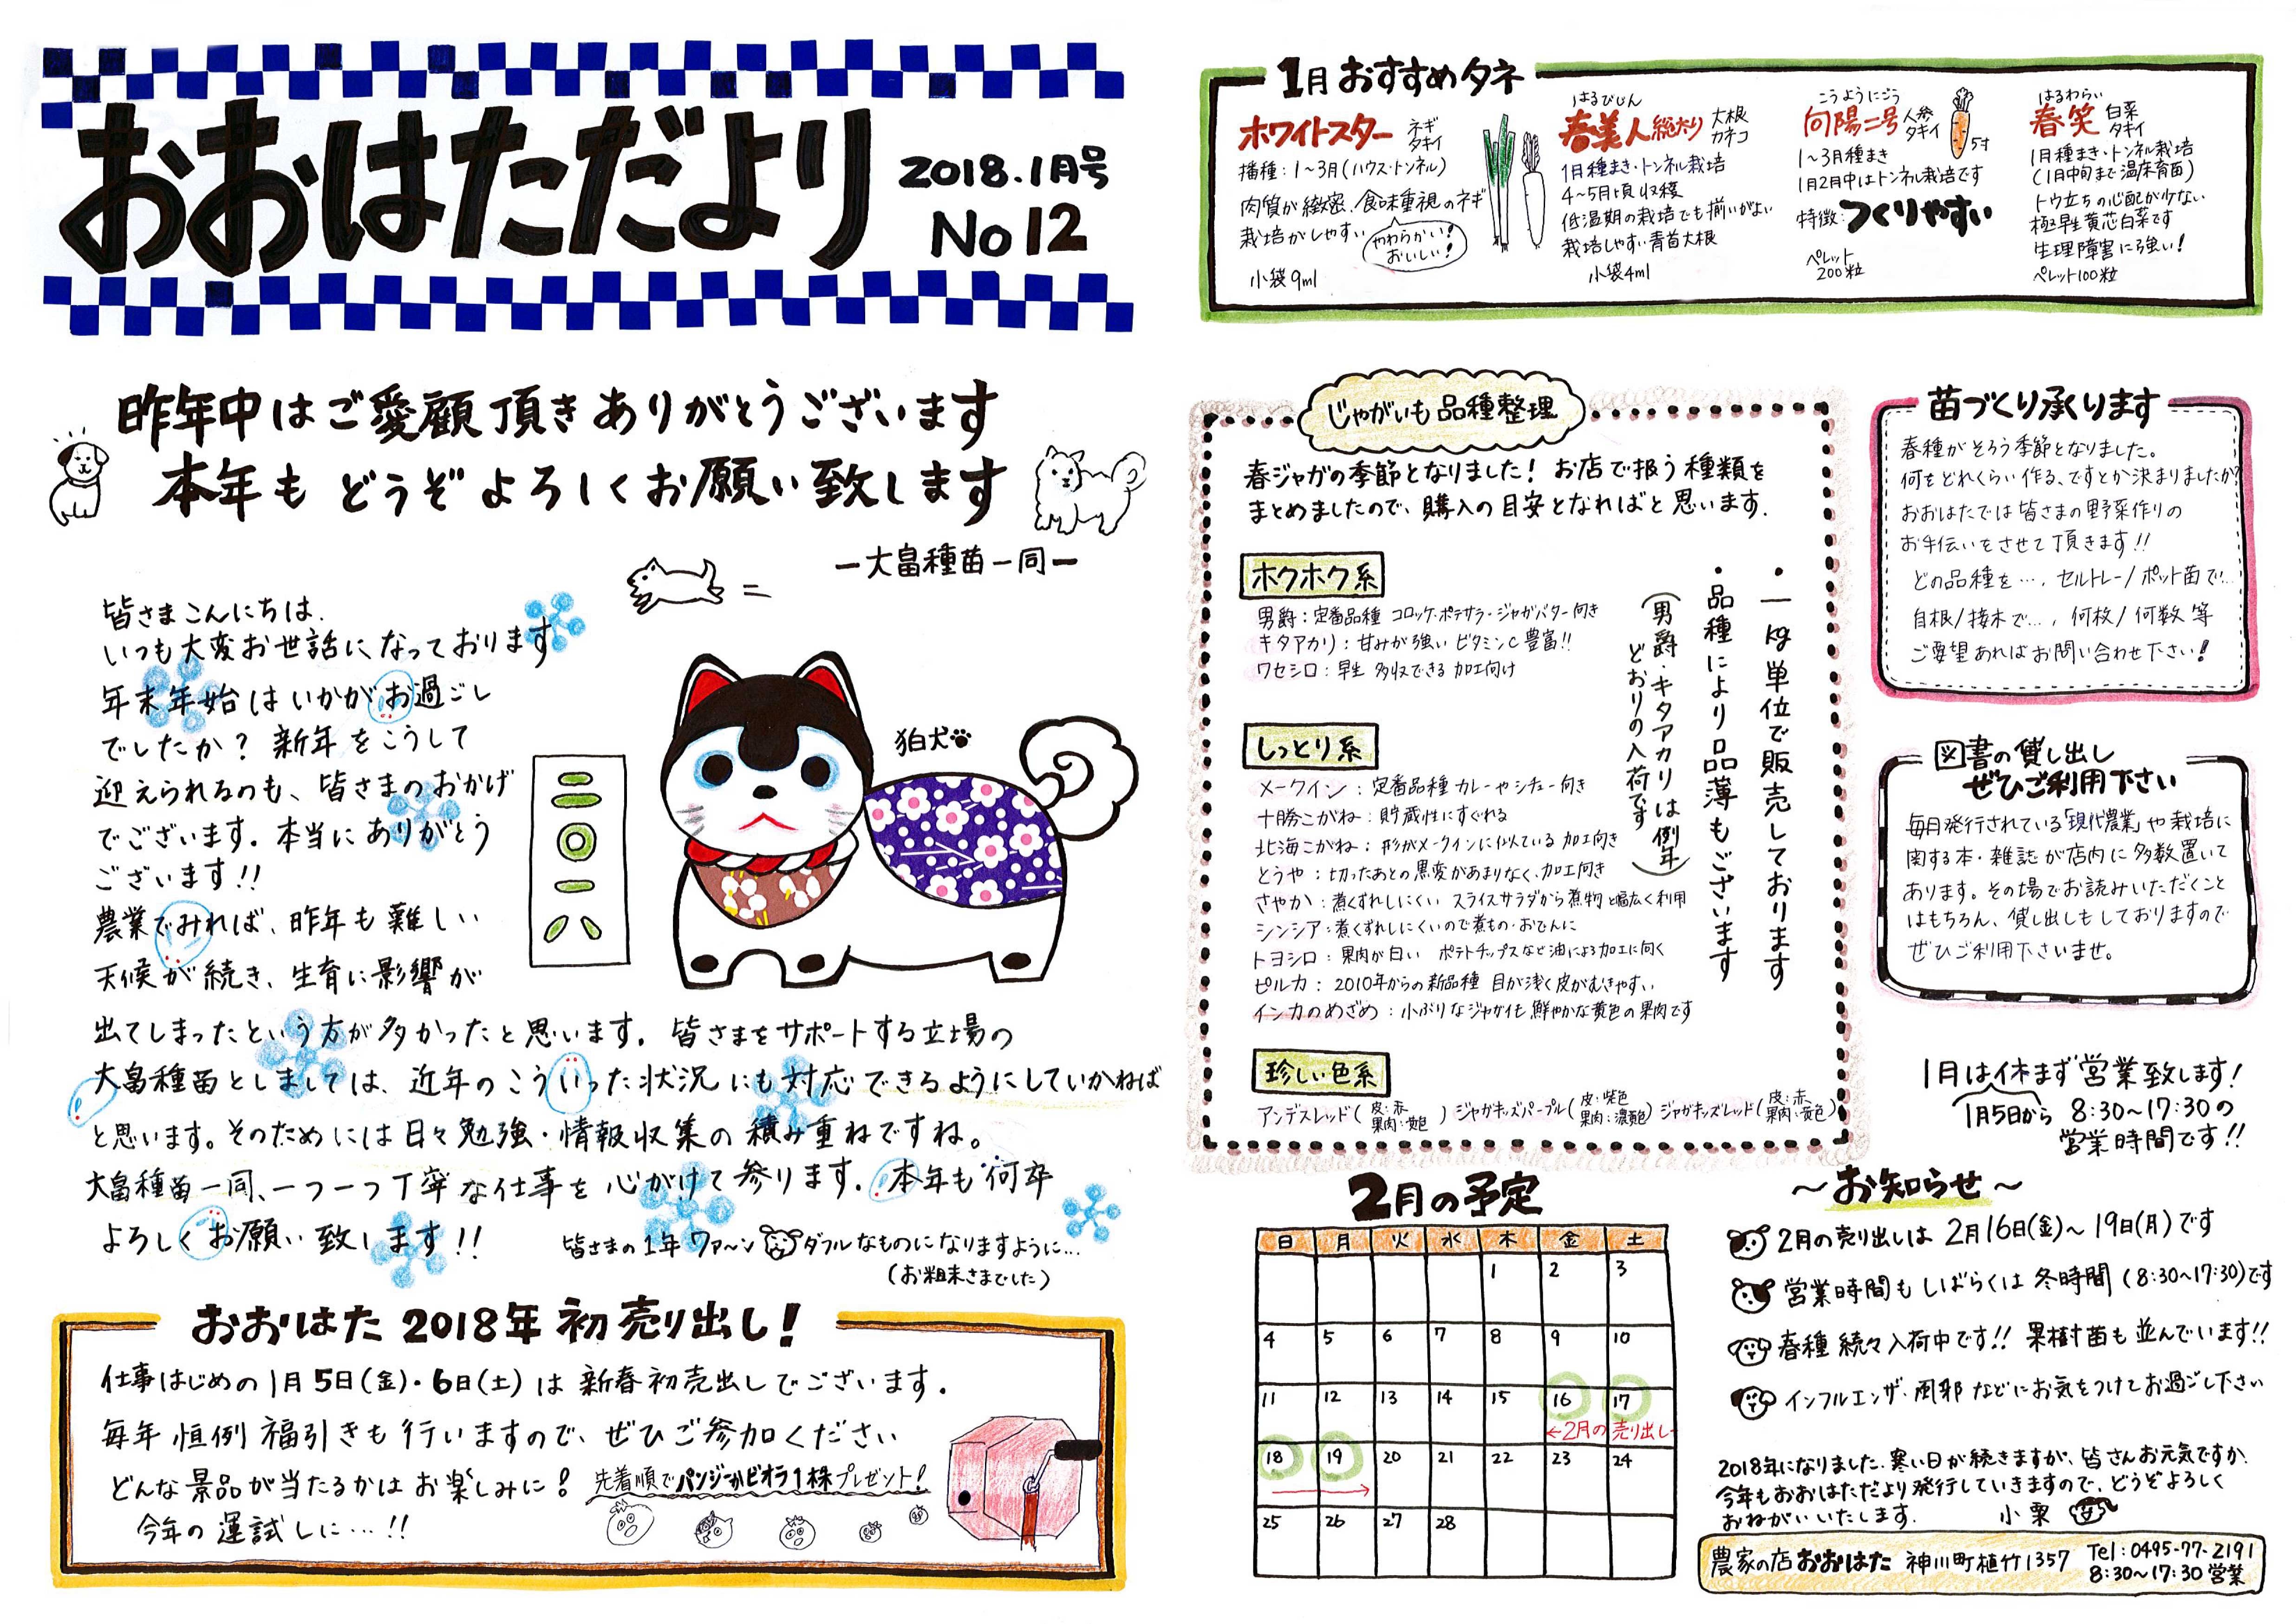 おおはただより
2018.1月号
No 12
昨年中はご愛顧頂きありがとうございます
本年もどうぞよろしくお願い致します
ー大畠種苗一同ー
皆さまこんにちは、
いつも大変お世話になっております
年末年始はいかがお過ごし
でしたか？新年をこうして
迎えられるのも、皆さまのおかげ
でございます。本当にありがとう
ございます!!
農業でみれば、昨年も難しい
天候が続き、生育に影響が
出てしまったという方が多かったと思います。皆さまをサポートする立場の
大畠種苗としましては、近年のこういった状況にも対応できるようにしていかねば
と思います。そのためには日々勉強・情報収集の積み重ねですね。
大畠種苗一同、一つ一つ丁寧な仕事を心がけて参ります。本年も何卒
よろしくお願い致します!!
皆さまの1年ワァ〜ンダフルなものになりますように…
(お粗末さまでした)
狛犬
二〇一八
おおはた2018年初売り出し!
仕事はじめの1月5日(金)・6日(土)は新春初売出しでございます。
毎年恒例福引きも行いますので、ぜひご参加ください
どんな景品が当たるかはお楽しみに!
先着順でパンジーかビオラ1株プレゼント!
今年の運試しに…!!
1月おすすめタネ
ホワイトスター ネギ タキイ
播種：1〜3月(ハウス・トンネル)
肉質が緻密、食味重視のネギ
栽培がしやすい
やわらかい!
おいしい!
小袋9ml
はるびじん
春美人総太り 大根 カネコ
1月種まき・トンネル栽培
4〜5月頃収穫
低温期の栽培でも揃いがよい
栽培しやすい青首大根
小袋4ml
こうようにごう
向陽二号 人参 タキイ
5寸
1〜3月種まき
1月2月中はトンネル栽培です
特徴：つくりやすい
ペレット
200粒
はるわらい
春笑 白菜 タキイ
1月種まき・トンネル栽培
(1月中旬まで温床育苗)
トウ立ちの心配が少ない
極早生黄芯白菜です
生理障害に強い!
ペレット100粒
じゃがいも品種整理
春ジャガの季節となりました! お店で扱う種類を
まとめましたので、購入の目安となればと思います。
ホクホク系
男爵：定番品種 コロッケ・ポテサラ・ジャガバター向き
キタアカリ：甘みが強い ビタミンC豊富!!
ワセシロ：早生 多収できる 加工向け
しっとり系
メークイン：定番品種 カレーやシチュー向き
十勝こがね：貯蔵性にすぐれる
北海こがね：形がメークインに似ている 加工向き
とうや：切ったあとの黒変があまりなく、加工向き
さやか：煮くずれしにくい スライスサラダから煮物と幅広く利用
シンシア：煮くずれしにくいので煮もの・おでんに
トヨシロ：果肉が白い ポテトチップスなど油による加工に向く
ピルカ：2010年からの新品種 目が浅く皮がむきやすい
インカのめざめ：小ぶりなジャガイモ 鮮やかな黄色の果肉です
・一kg単位で販売しております
・品種により品薄もございます
(男爵・キタアカリは例年
どおりの入荷です)
珍しい色系
アンデスレッド(皮：赤 果肉：黄色) ジャガキッズパープル(皮：紫色 果肉：濃黄色) ジャガキッズレッド(皮：赤 果肉：黄色)
苗づくり承ります
春種がそろう季節となりました。
何をどれくらい作る、ですとか決まりましたか?
おおはたでは皆さまの野菜作りの
お手伝いをさせて頂きます!!
どの品種を…、セルトレー/ポット苗で…
自根/接木で…、何枚/何数 等
ご要望あればお問い合わせ下さい!
図書の貸し出し
ぜひご利用下さい
毎月発行されている「現代農業」や栽培に
関する本・雑誌が店内に多数置いて
あります。その場でお読みいただくこと
はもちろん、貸し出しもしておりますので
ぜひご利用下さいませ。
1月は休まず営業致します!
1月5日から 8:30〜17:30の
営業時間です!!
2月の予定
日 月 火 水 木 金 土
1 2 3
4 5 6 7 8 9 10
11 12 13 14 15 16 17
←2月の売り出し
18 19 20 21 22 23 24
25 26 27 28
〜お知らせ〜
2月の売り出しは 2月16日(金)〜19日(月)です
営業時間もしばらくは冬時間(8:30〜17:30)です
春種続々入荷中です!! 果樹苗も並んでいます!!
インフルエンザ・風邪などにお気をつけてお過ごし下さい
2018年になりました。寒い日が続きますが、皆さんお元気ですか。
今年もおおはただより発行していきますので、どうぞよろしく
おねがいいたします。 小栗
農家の店おおはた 神川町植竹1357 Tel：0495-77-2191
8:30〜17:30営業